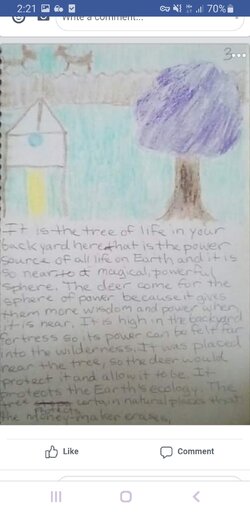 2:21 70%
Write a comment...
3
It is the tree of life in your
backyard here that is the power
source of all life on Earth and it is
so near to a magical, powerful
sphere. The deer come for the
sphere of power because it gives
them more wisdom and power when
it is near. It is high in the backyard
fortress so its power can be felt far
into the wilderness. It was placed
near the tree, so the deer would
protect it and allow it to be. It
protects the Earth's ecology. The
tree protects certain natural places that
the money-maker erases,
Like Comment